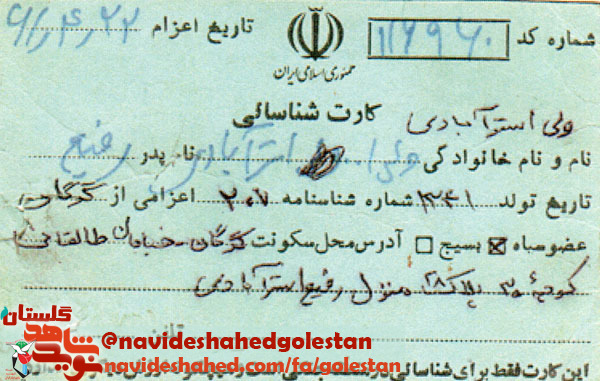 شماره کد ۱۱۶۹۶۰ تاریخ اعزام ۶۱/۴/۲۲
جمهوری اسلامی ایران
کارت شناسائی
ولی استرآبادی
نام و نام خانوادگی ولی استرآبادی نام پدر رفیع
تاریخ تولد ۱۳۴۱ شماره شناسنامه ۲۰۷ اعزامی از گرگان
عضو سپاه بسیج آدرس محل سکونت گرگان - خیابان طالقانی
کوچه پلاک منزل رفیع استرآبادی
تلفن
@navideshahedgolestan
navideshahed.com/fa/golestan
نوید شاهد گلستان
این کارت فقط برای شناسائی در